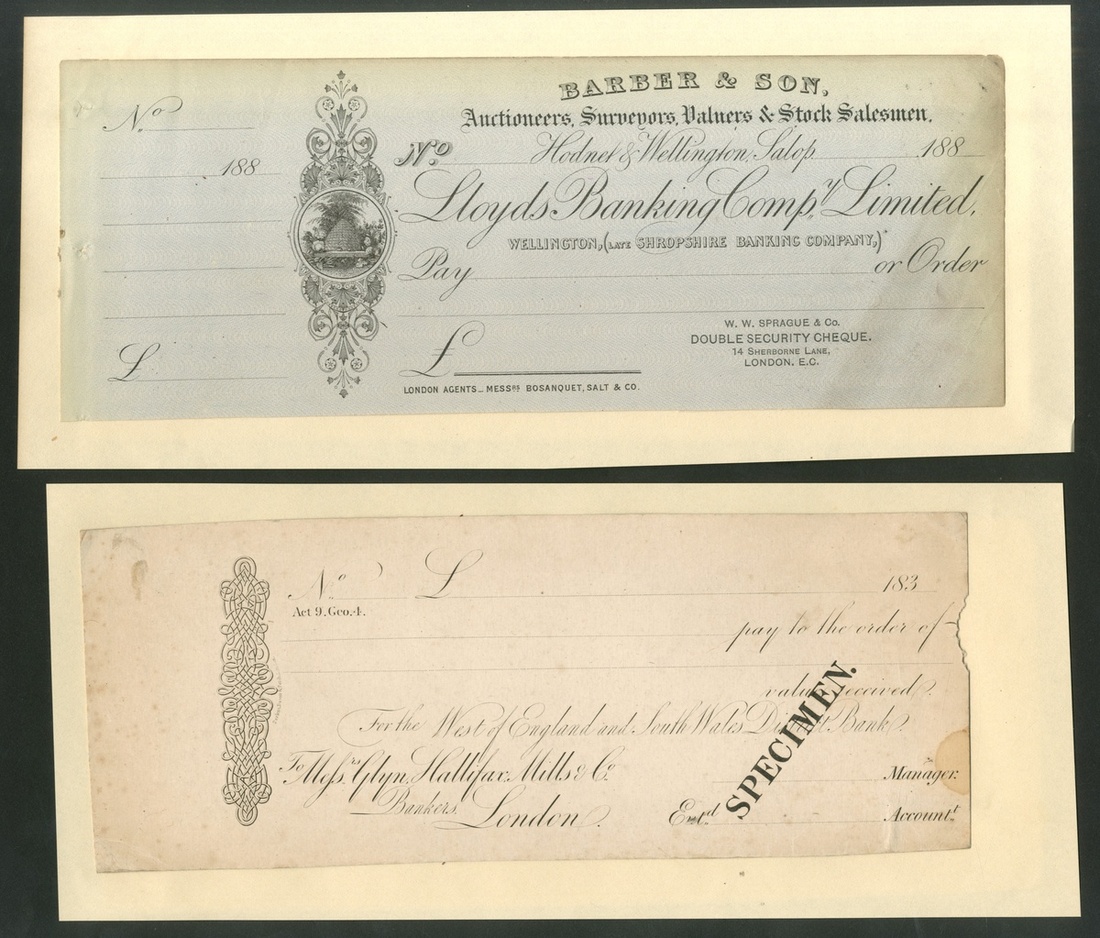 No
188
£
BARBER & SON,
Auctioneers, Surveyors, Valuers & Stock Salesmen.
No Hodnet & Wellington, Salop 188
Lloyds Banking Compy. Limited,
WELLINGTON, (LATE SHROPSHIRE BANKING COMPANY,)
Pay or Order
£
W. W. SPRAGUE & Co.
DOUBLE SECURITY CHEQUE.
14 SHERBORNE LANE,
LONDON, E.C.
LONDON AGENTS_ MESSRS BOSANQUET, SALT & CO.
No. £ 183
Act 9. Geo. 4.
pay to the order of
value received.
For the West of England and South Wales District Bank.
To Messrs. Glyn, Hallifax, Mills & Co.
Manager.
Bankers, London.
Entd Accountt.
SPECIMEN.